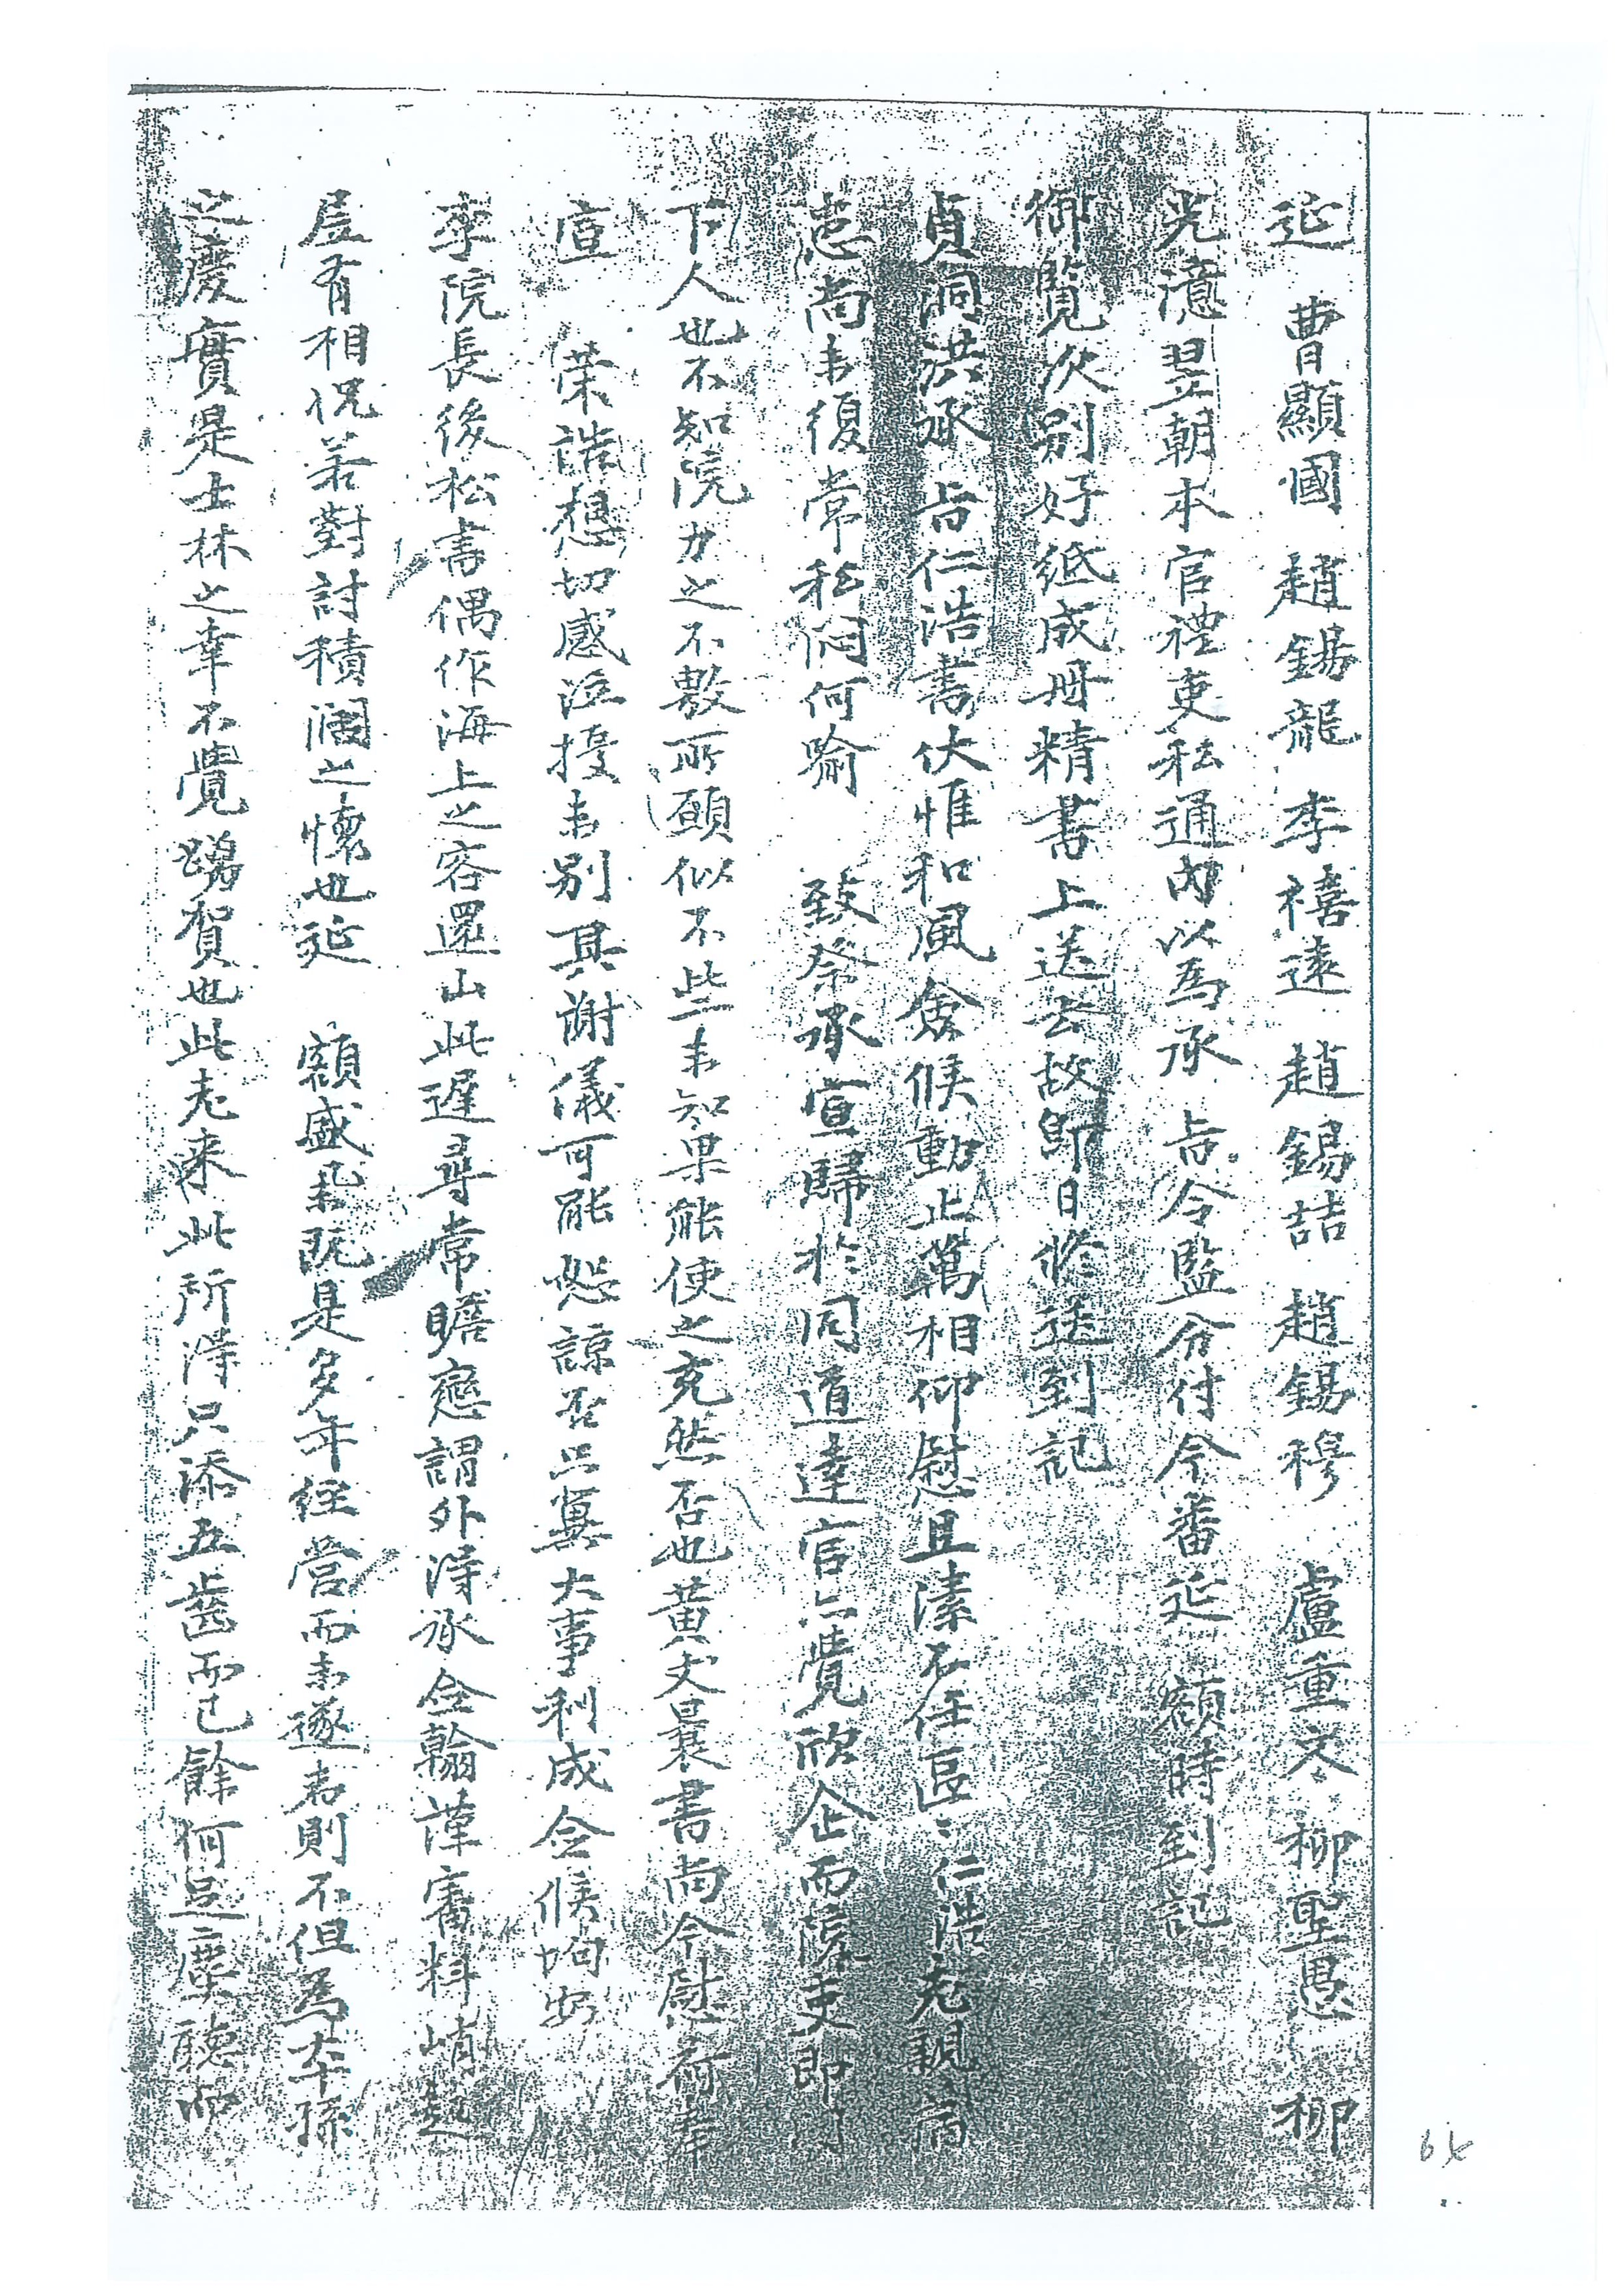 延 曺顯國 趙錫龍 李禧遠 趙錫喆 趙錫穆 盧重峑 柳聖愚 柳
光澺翌朝本官禮吏私通內以爲承 旨令監分付今番延 額時到記
御覽次別好紙成冊精書上送云故卽日修送到記
貞洞洪承 旨仁浩書伏惟和風僉候動止萬相仰慰且溸不任區〻仁浩老親病
患尚未復常私悶何喩 致祭承宣歸於同道達官亦覺欣企而院吏卽
下人也不知院力之不敷所願似不些未知果能使之充然否也黃丈曩書尚今慰荷奉
宣 葉誥想切感泣擾未別具謝儀可能恕諒否只冀大事利成僉候均安
李院長後松書偶作海上之客還山此遲尋常瞻戀謂外得承僉翰謹審料峭起
居有相怳若對討積濶之懷也延 額盛擧旣是多年經營而未遂者則不但爲本孫
之慶實是士林之幸不覺踴賀也此老來此所得只添五齒而已餘何足塵聽而
64